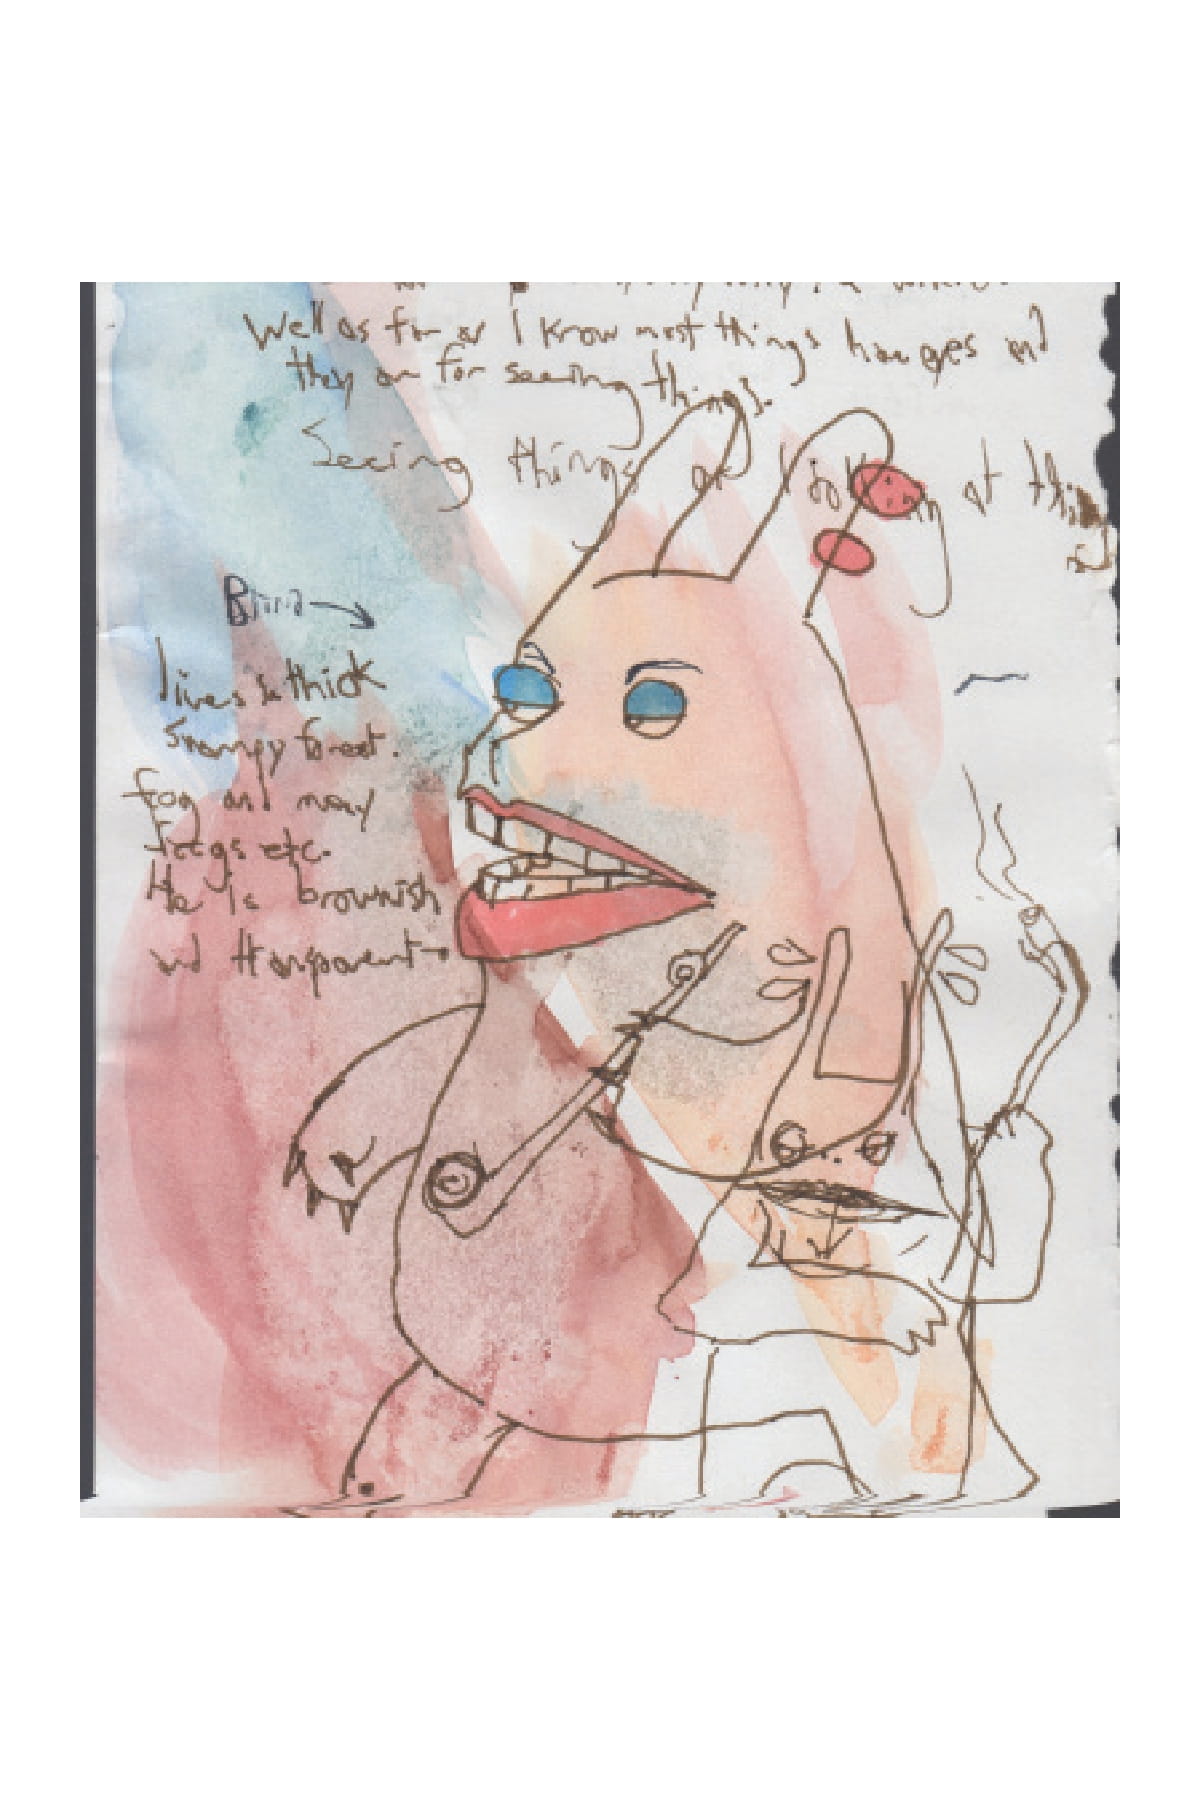 Well as far as I know most things have eyes and
they are for seeing things.
Seeing things or looking at things
lives in thick
swampy forest.
fog and many
frogs etc.
He is brownish
and transparent